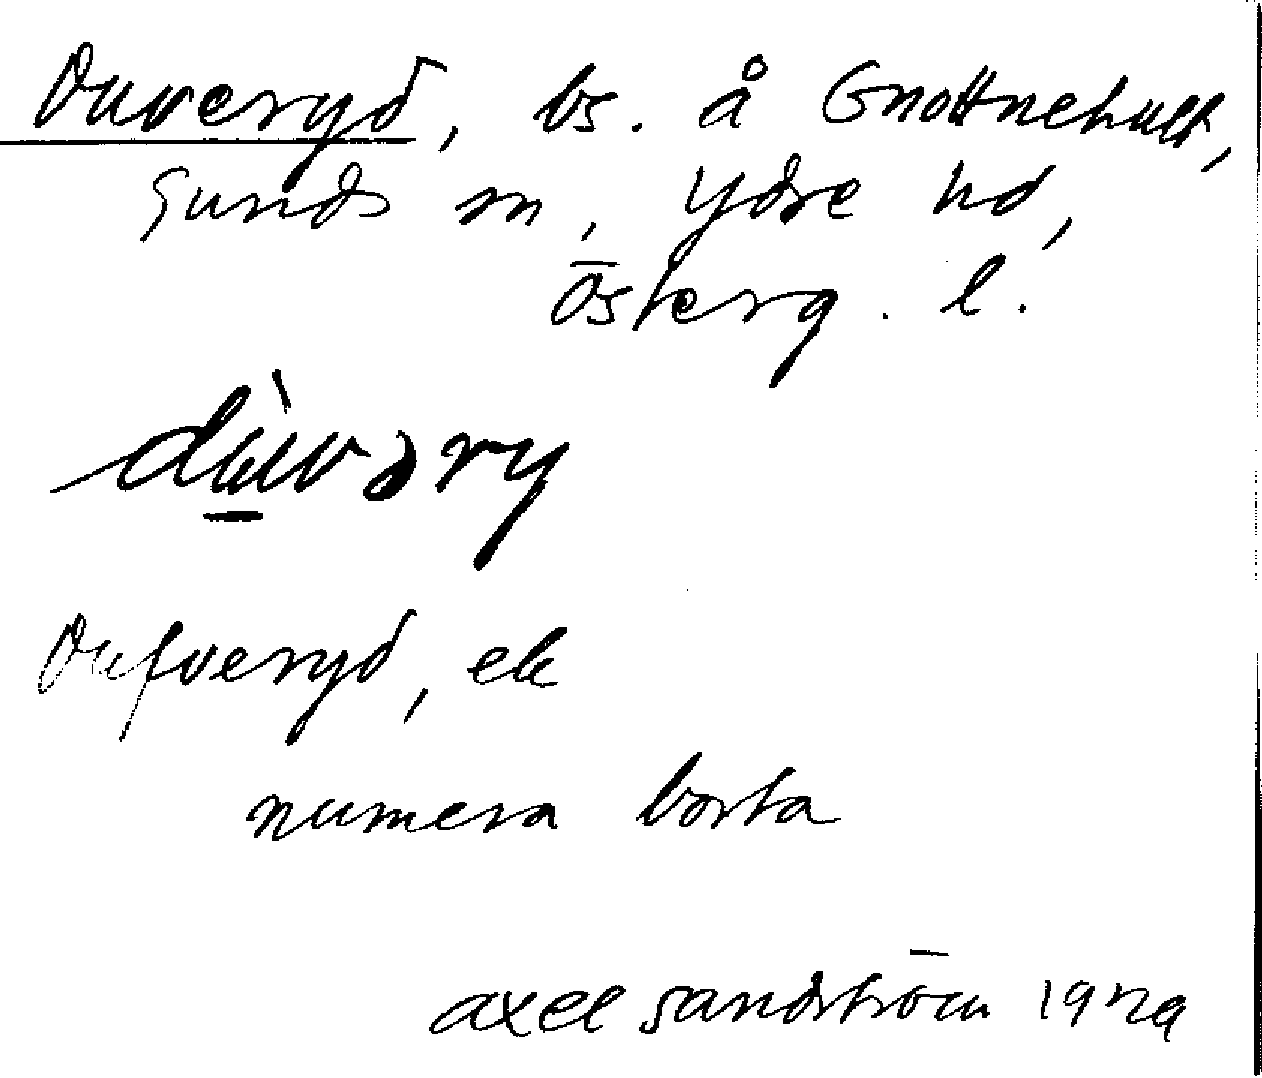 Duveryd, bs. å Gnottnehult,
Sunds sn, Ydre hd,
Österg. l.
Dufveryd, ek
numera borta
Axel Sandström 1929